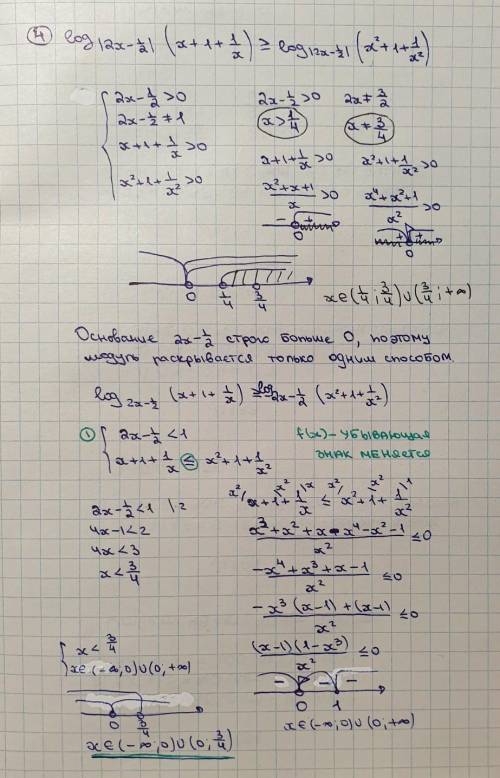 ④ log|2x-½| (x+1+1/x) ≥ log|2x-½| (x²+1+1/x²)
{ 2x-½>0
2x-½≠1
x+1+1/x>0
x²+1+1/x²>0
2x-½>0
x>1/4
x+1+1/x>0
(x²+x+1)/x>0
- +
0
2x≠3/2
x≠3/4
x²+1+1/x²>0
(x⁴+x²+1)/x²>0
+ +
0
0 1/4 3/4
x∈(1/4; 3/4)∪(3/4; +∞)
Основание 2x-½ строго больше 0, поэтому
модуль раскрывается только одним способом.
log 2x-½ (x+1+1/x) ≥ log 2x-½ (x²+1+1/x²)
① { 2x-½<1
x+1+1/x ≤ x²+1+1/x²
f(x)-убывающая
знак меняется
2x-½<1 |·2
4x-1<2
4x<3
x<3/4
x²/ x²/ /x x²/ x²/ /1
x+1+1/x ≤ x²+1+1/x²
(x³+x²+x-x⁴-x²-1)/x² ≤0
(-x⁴+x³+x-1)/x² ≤0
(-x³(x-1)+(x-1))/x² ≤0
((x-1)(1-x³))/x² ≤0
- - -
0 1
x∈(-∞,0)∪(0,+∞)
{ x<3/4
x∈(-∞,0)∪(0,+∞)
0 3/4
x∈(-∞;0)∪(0;3/4)